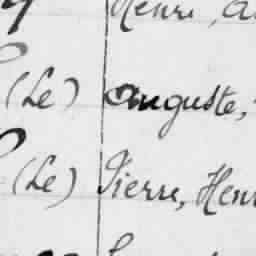 Henri, a
(Le) Auguste,
(Le) Pierre, Hen